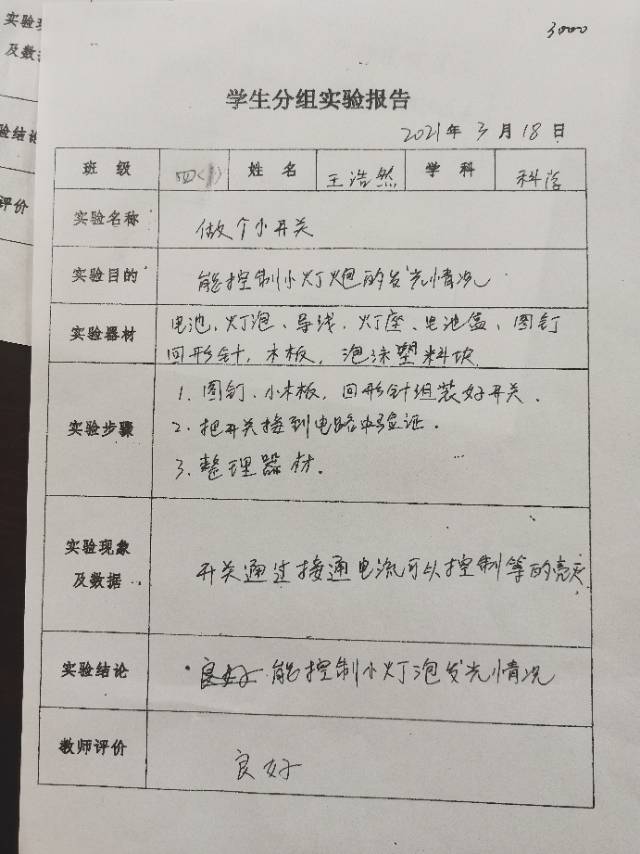 实验现
及数据
验结论
评价
3000
学生分组实验报告
2021年3月18日
班 级 四(1) 姓 名 王浩然 学 科 科学
实验名称 做个小开关
实验目的 能控制小灯炮的发光情况
实验器材 电池、灯泡、导线、灯座、电池盒、图钉
回形针，木板，泡沫塑料块
实验步骤 1. 图钉、小木板，回形针组装好开关.
2. 把开关接到电路中验证.
3. 整理器材.
实验现象
及数据 开关通过接通电流可以控制等的亮灭
实验结论 良好.能控制小灯泡发光情况
教师评价 良好